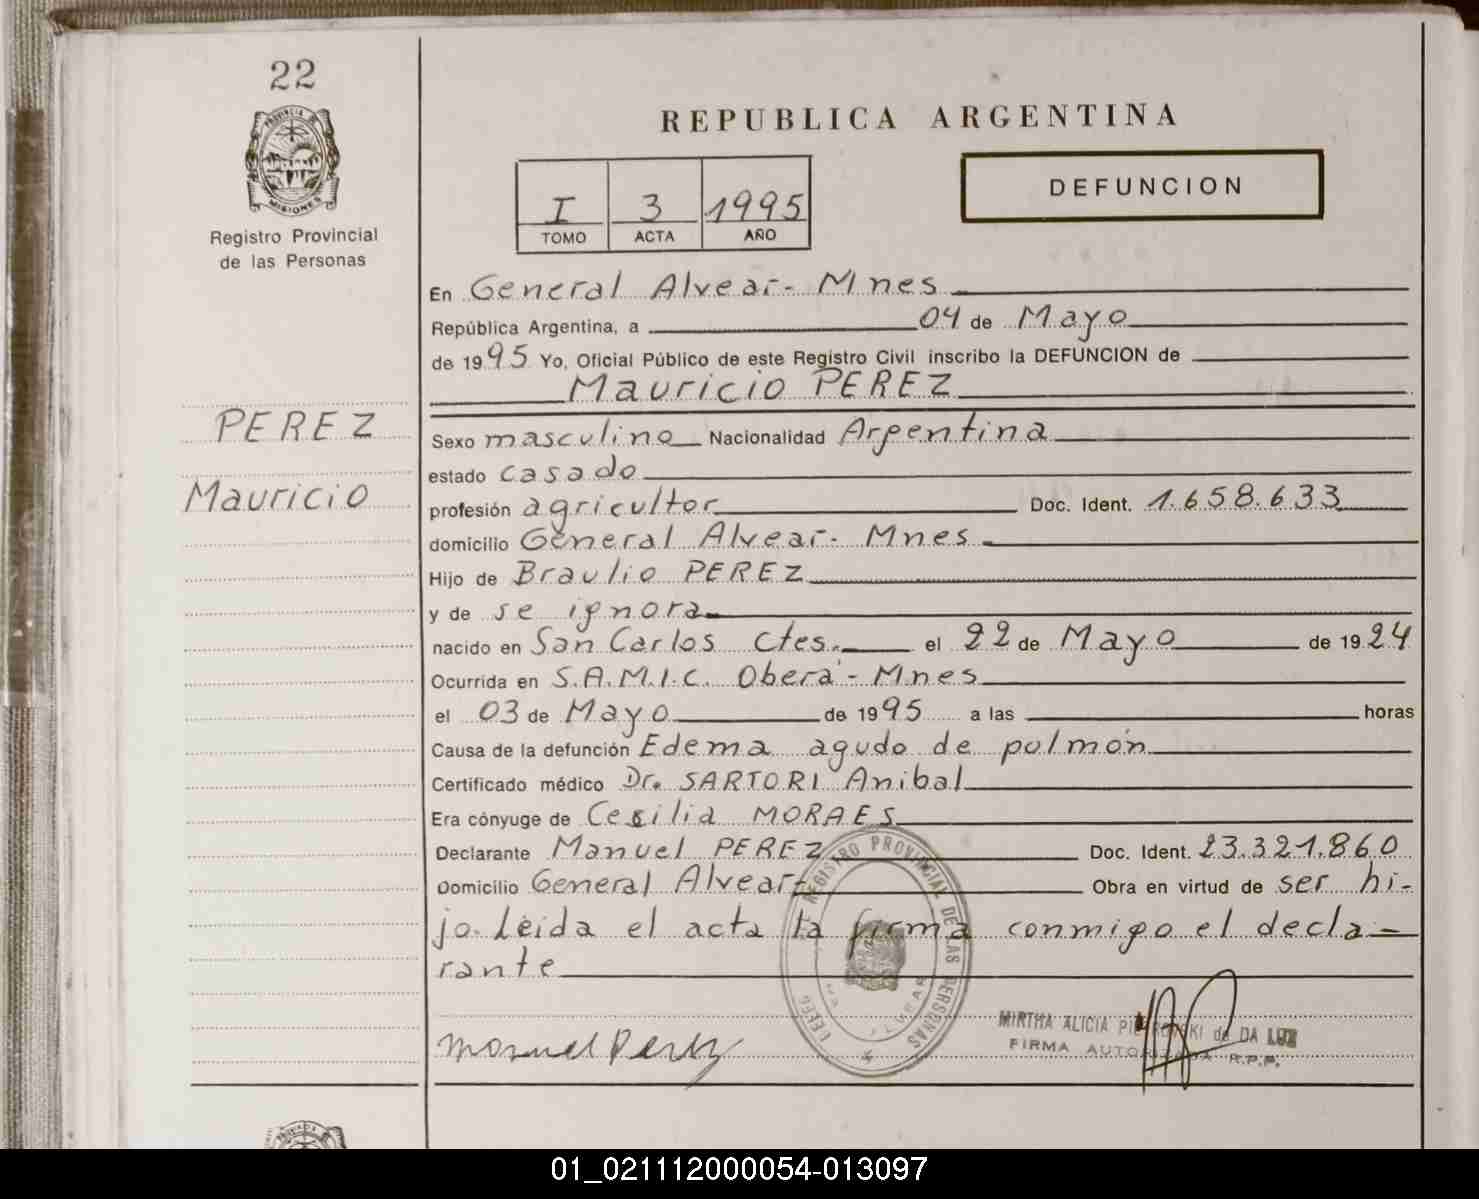 22
PROVINCIA DE
MISIONES
Registro Provincial
de las Personas
REPUBLICA ARGENTINA
I 3 1995
TOMO ACTA AÑO
DEFUNCION
En General Alvear - Mnes
República Argentina, a 04 de Mayo
de 1995 Yo, Oficial Público de este Registro Civil inscribo la DEFUNCION de
Mauricio PEREZ
PEREZ
Mauricio
Sexo masculino Nacionalidad Argentina
estado casado
profesión agricultor Doc. Ident. 1.658.633
domicilio General Alvear - Mnes
Hijo de Braulio PEREZ
y de se ignora
nacido en San Carlos Ctes. el 22 de Mayo de 1924
Ocurrida en S.A.M.I.C. Oberá - Mnes
el 03 de Mayo de 1995 a las horas
Causa de la defunción Edema agudo de pulmón
Certificado médico Dr. SARTORI Anibal
Era cónyuge de Cecilia MORAES
Declarante Manuel PEREZ Doc. Ident. 23.321.860
Domicilio General Alvear - Obra en virtud de ser hi-
jo. Leida el acta la firma conmigo el decla-
rante
REGISTRO PROVINCIAL DE LAS PERSONAS
Manuel Perez
MIRTHA ALICIA de DA LUZ
FIRMA AUTORIZADA R.P.P.
01_021112000054-013097